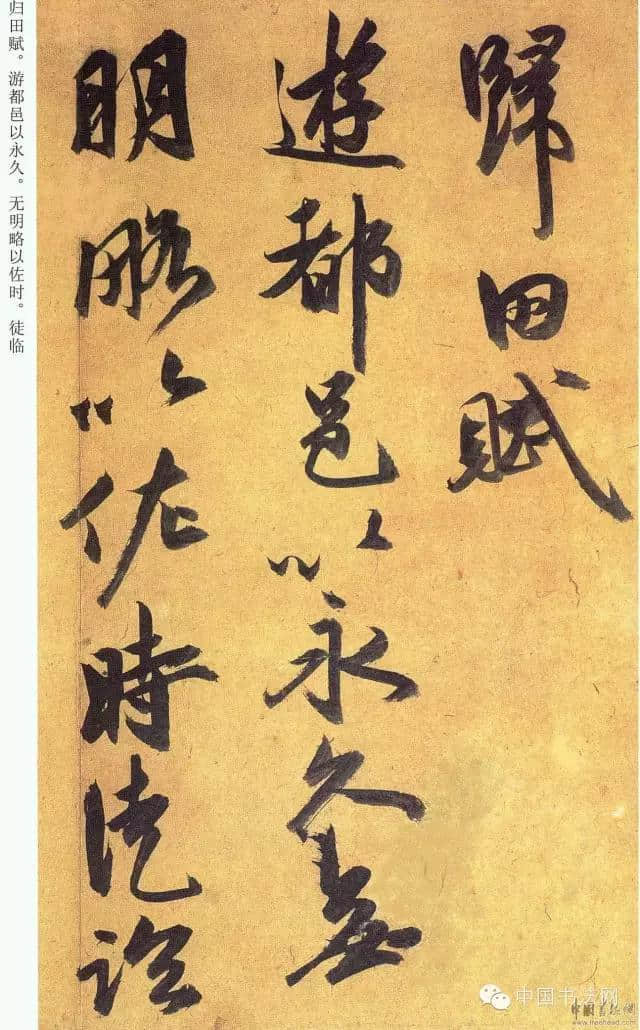 歸田賦
遊都邑以永久無
明略以佐時徒臨
归田赋。游都邑以永久。无明略以佐时。徒临
中国书法网
www.freehead.com